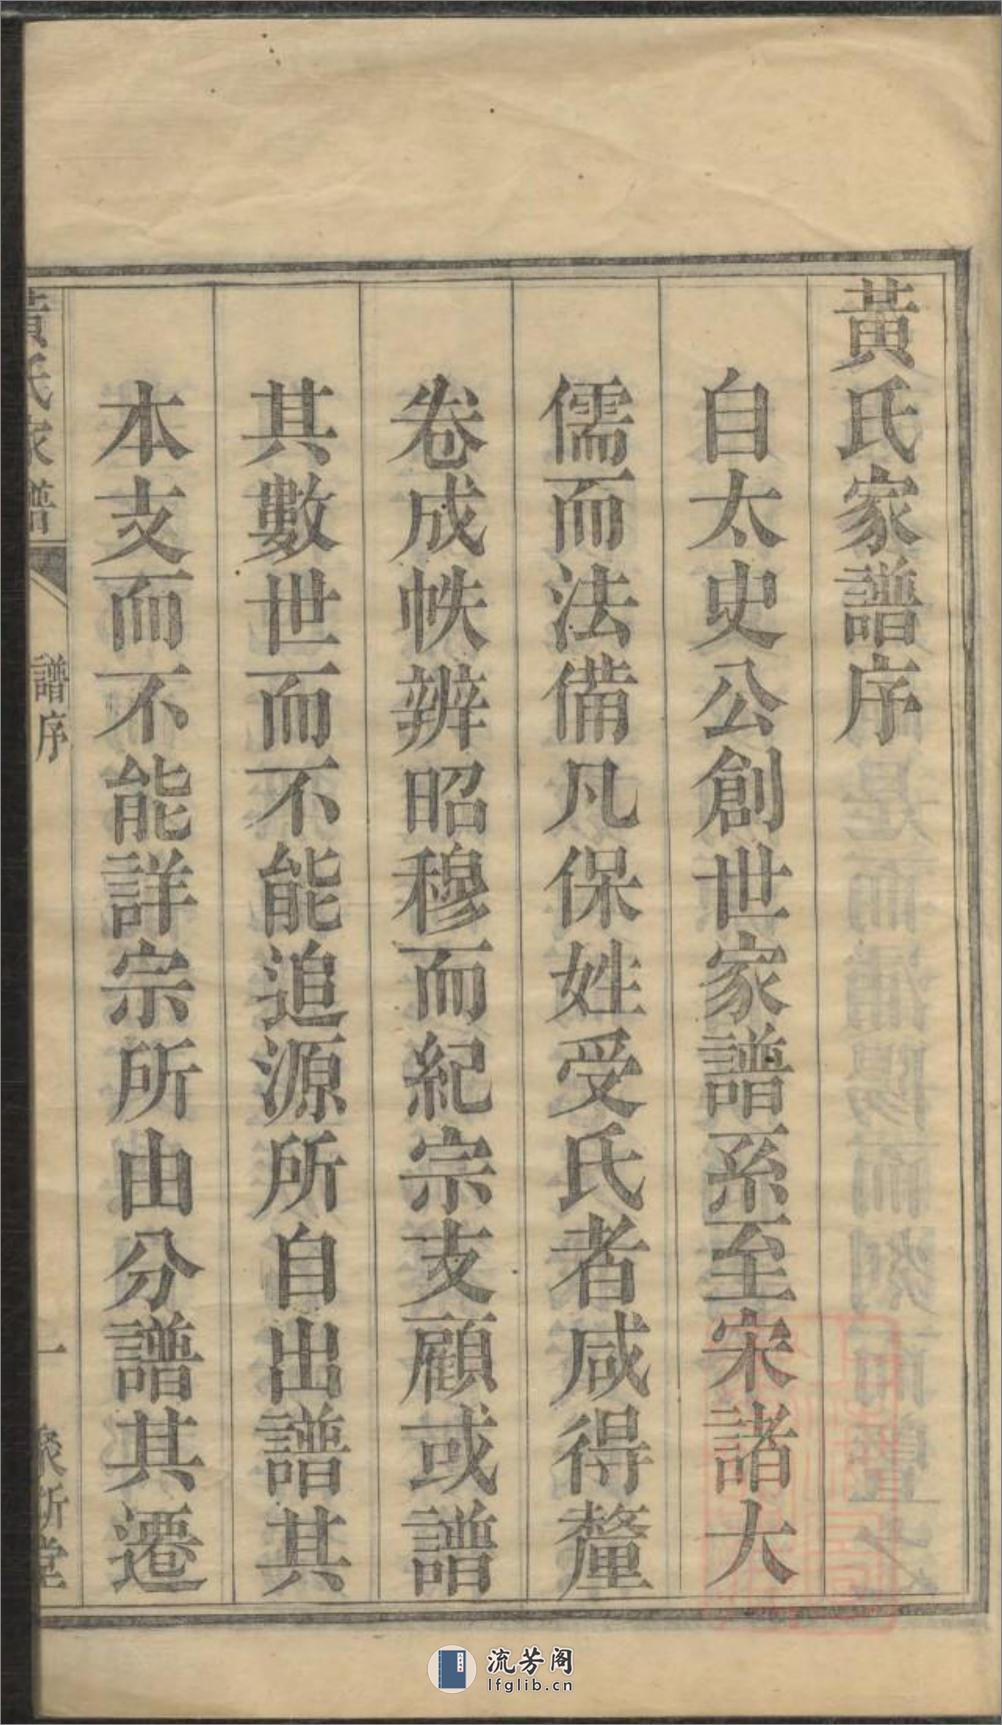 黃氏家譜序
自太史公創世家譜系至宋諸大
儒而法備凡保姓受氏者咸得釐
卷成帙辨昭穆而紀宗支顧或譜
其數世而不能追源所自出譜其
本支而不能詳宗所由分譜其遷
黃氏家譜
譜序
一
流芳阁
lfglib.cn